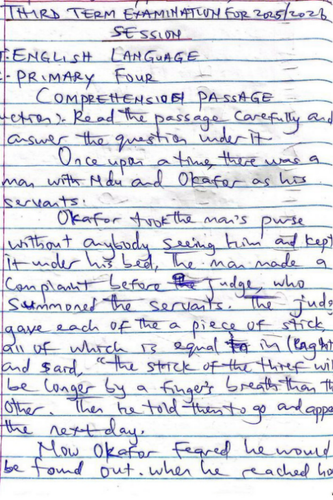 THIRD TERM EXAMINATION FOR 2025/2026
SESSION
ENGLISH LANGUAGE
PRIMARY FOUR
COMPREHENSION PASSAGE
uction:- Read the passage carefully and
answer the question under it
Once upon a time, there was a
man with Ndu and Okafor as his
servants.
Okafor took the man's purse
without anybody seeing him and kept
it under his bed, The man made a
Complaint before judge, who
Summoned the servants. The jud
gave each of the a piece of stick
all of which is equal in length
and said, "the stick of the thief wi
be longer by a finger's breath than th
other. Then he told them to go and appe
the next day.
Now Okafor feared he would
be found out. when he reached ho